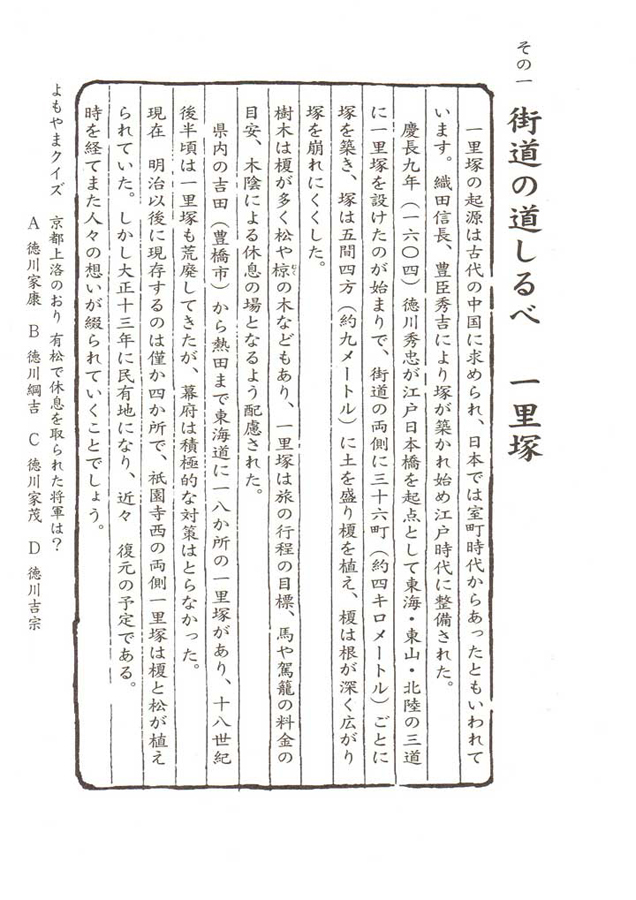 その一　街道の道しるべ　一里塚
一里塚の起源は古代の中国に求められ、日本では室町時代からあったともいわれて
います。織田信長、豊臣秀吉により塚が築かれ始め江戸時代に整備された。
慶長九年（一六〇四）徳川秀忠が江戸日本橋を起点として東海・東山・北陸の三道
に一里塚を設けたのが始まりで、街道の両側に三十六町（約四キロメートル）ごとに
塚を築き、塚は五間四方（約九メートル）に土を盛り榎を植え、榎は根が深く広がり
塚を崩れにくくした。
樹木は榎が多く松や椋の木などもあり、一里塚は旅の行程の目標、馬や駕籠の料金の
目安、木陰による休息の場となるよう配慮された。
県内の吉田（豊橋市）から熱田まで東海道に一八か所の一里塚があり、十八世紀
後半頃は一里塚も荒廃してきたが、幕府は積極的な対策はとらなかった。
現在　明治以後に現存するのは僅か四か所で、祇園寺西の両側一里塚は榎と松が植え
られていた。しかし大正十三年に民有地になり、近々　復元の予定である。
時を経てまた人々の想いが綴られていくことでしょう。
よもやまクイズ　京都上洛のおり　有松で休息を取られた将軍は？
A　徳川家康　B　徳川綱吉　C　徳川家茂　D　徳川吉宗